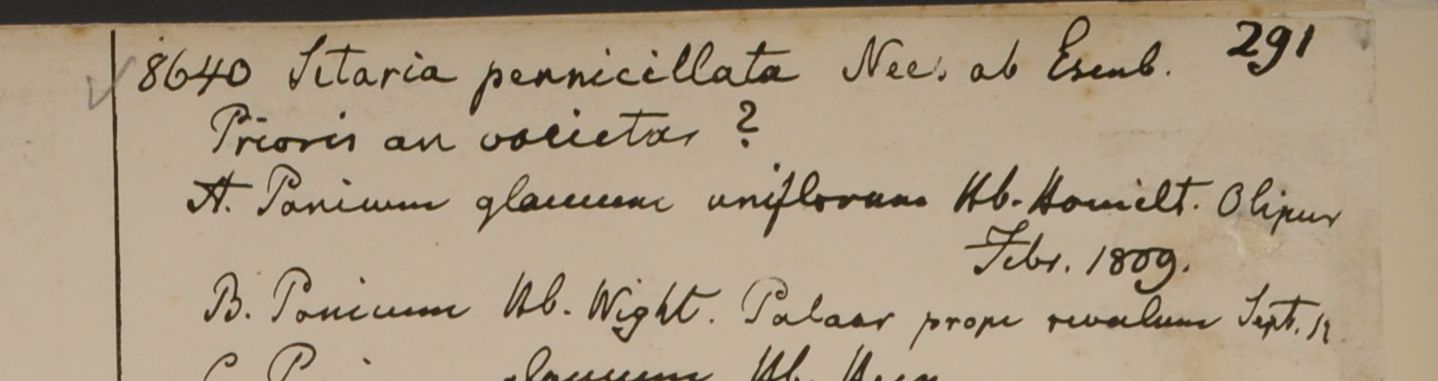 291
8640 Setaria pennicillata Nees. ab Esenb.
Prioris an varietas ?
A. Panicum glaucum uniflorum Hb. Hamilt. Olipur
Febr. 1809.
B. Panicum Hb. Wight. Palaar prope rivulum Sept.
C. glaucum Hb.